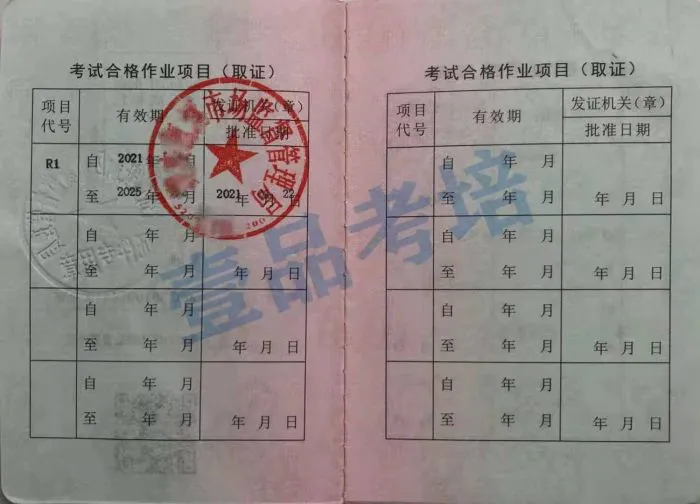 考试合格作业项目（取证）
项目代号 有效期 发证机关(章)
批准日期
R1 自 2021 年 月
至 2025 年 月 2021 年 月 22 日
自 年 月
至 年 月 年 月 日
自 年 月
至 年 月 年 月 日
自 年 月
至 年 月 年 月 日
市场监督管理局
考试合格作业项目（取证）
项目代号 有效期 发证机关(章)
批准日期
自 年 月
至 年 月 年 月 日
自 年 月
至 年 月 年 月 日
自 年 月
至 年 月 年 月 日
自 年 月
至 年 月 年 月 日
壹品考培